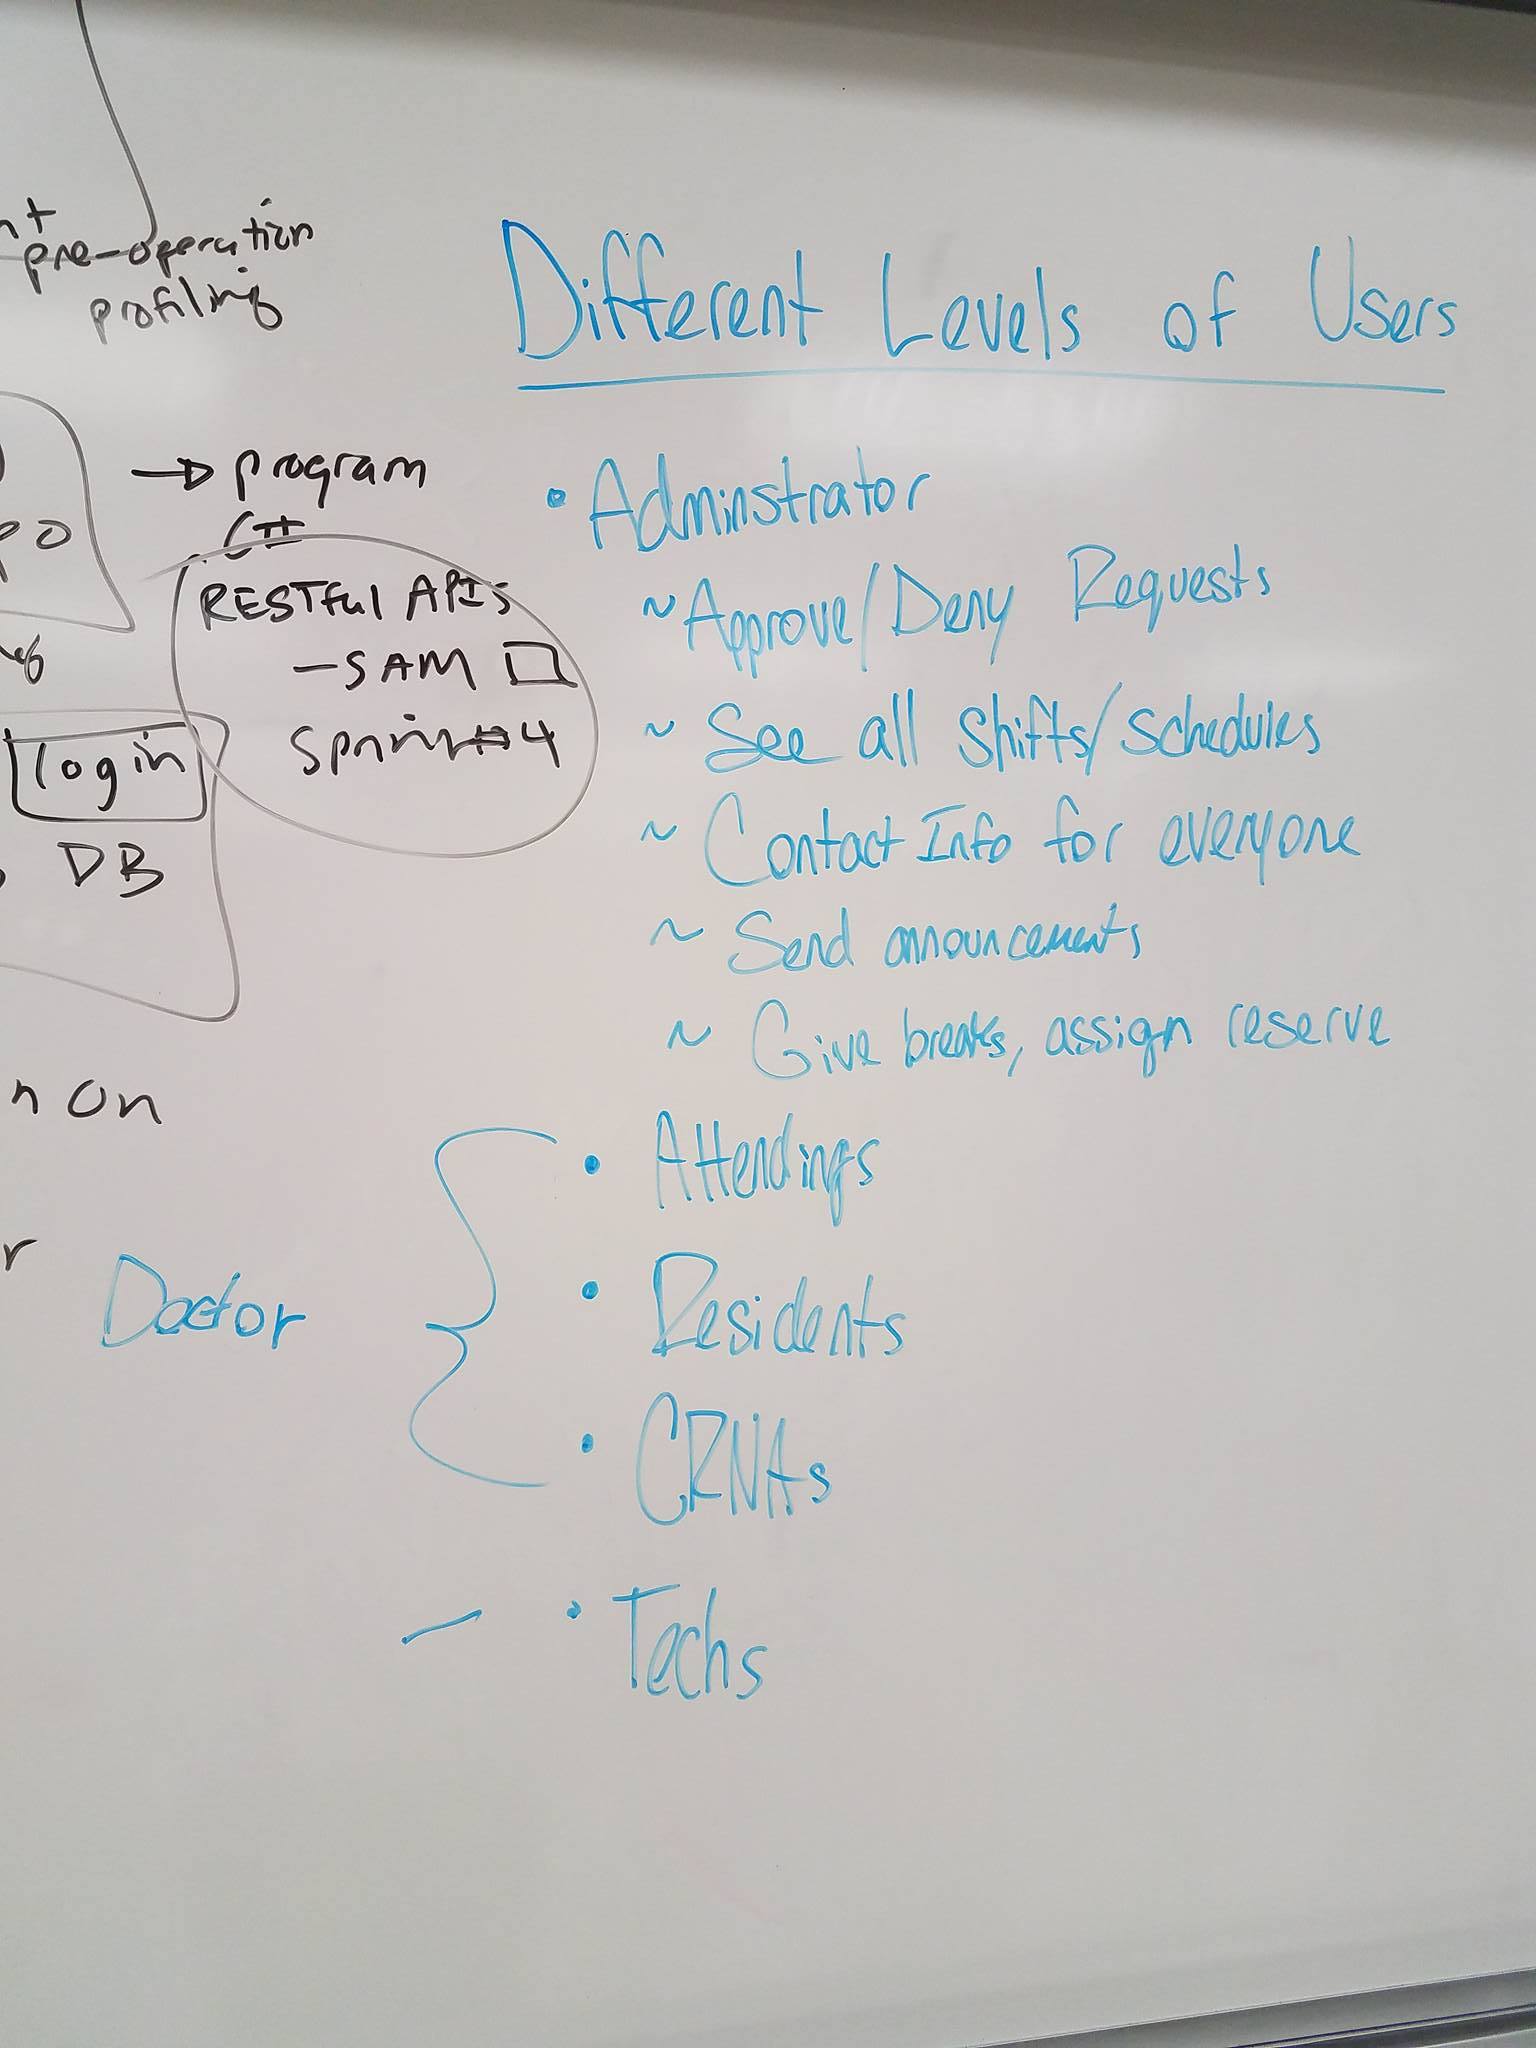 pre-operation
profiling
→ program
C#
RESTful APIs
- SAM
login
DB
on
Doctor
Different Levels of Users
• Adminstrator
~ Approve/Deny Requests
~ See all shifts/schedules
~ Contact Info for everyone
~ Send announcements
~ Give breaks, assign reserve
• Attendings
• Residents
• CRNAs
• Techs